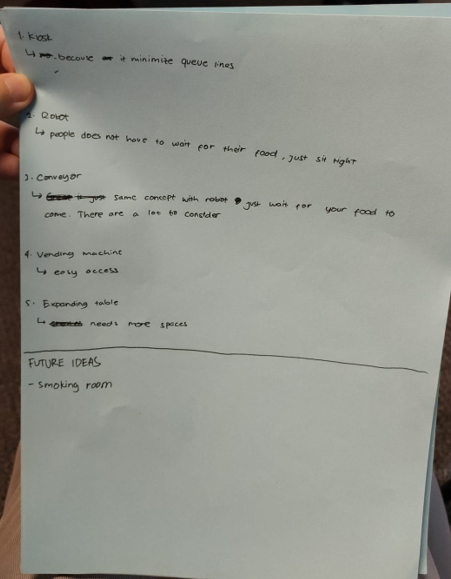 1. Kiosk
↳ because it minimize queue lines
2. Robot
↳ people does not have to wait for their food, just sit tight
3. Conveyor
↳ same concept with robot just wait for your food to
come. There are a lot to consider
4. Vending machine
↳ easy access
5. Expanding table
↳ needs more spaces
FUTURE IDEAS
- Smoking room